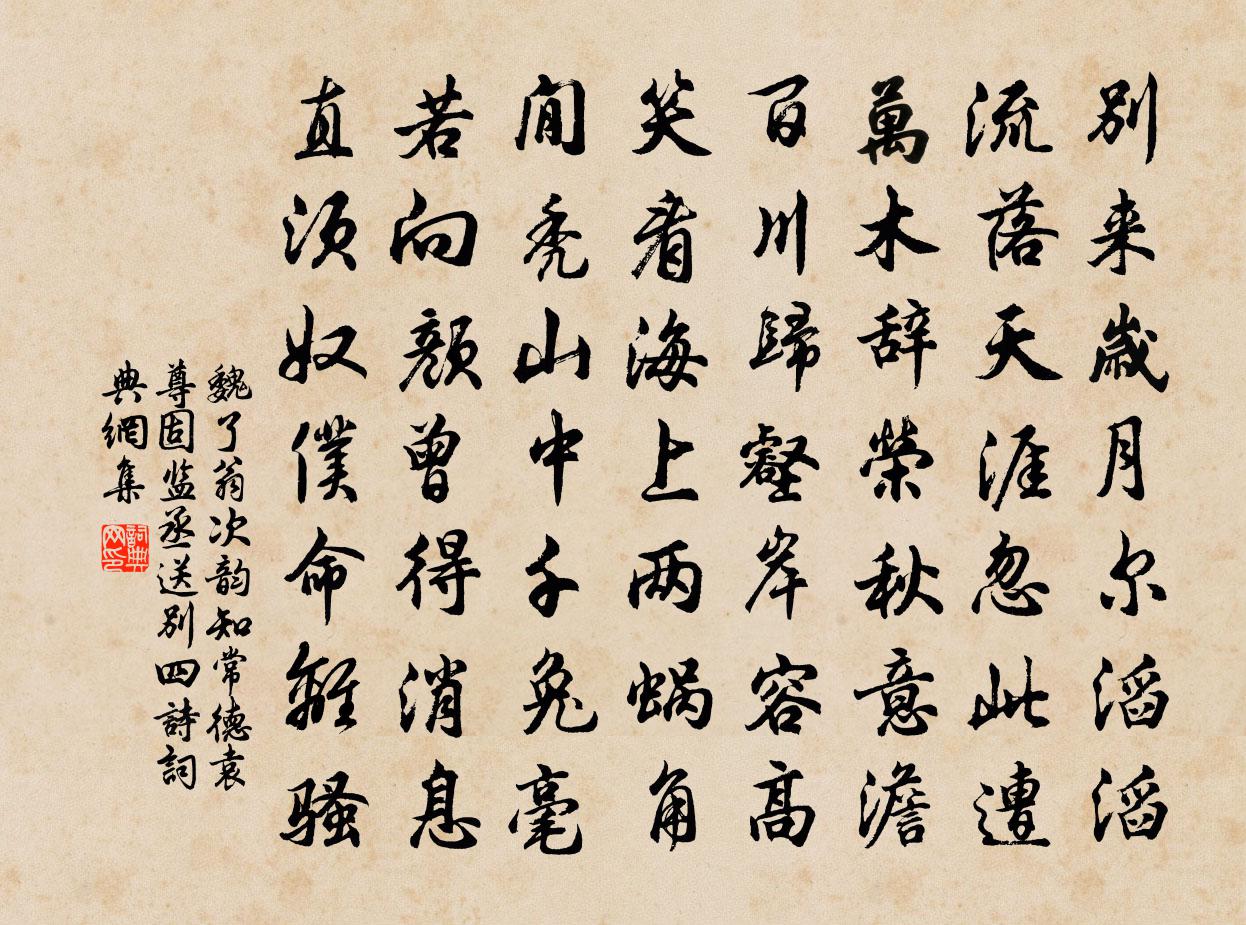 别来歲月尔滔滔
流落天涯忽此遭
萬木辞榮秋意澹
百川歸壑岸容高
笑看海上两蜗角
閒秃山中千兔毫
若向顔曾得消息
直須奴僕命離騷
魏了翁次韵知常德袁
尊固监丞送别四詩詞
典網集
詞典
网印